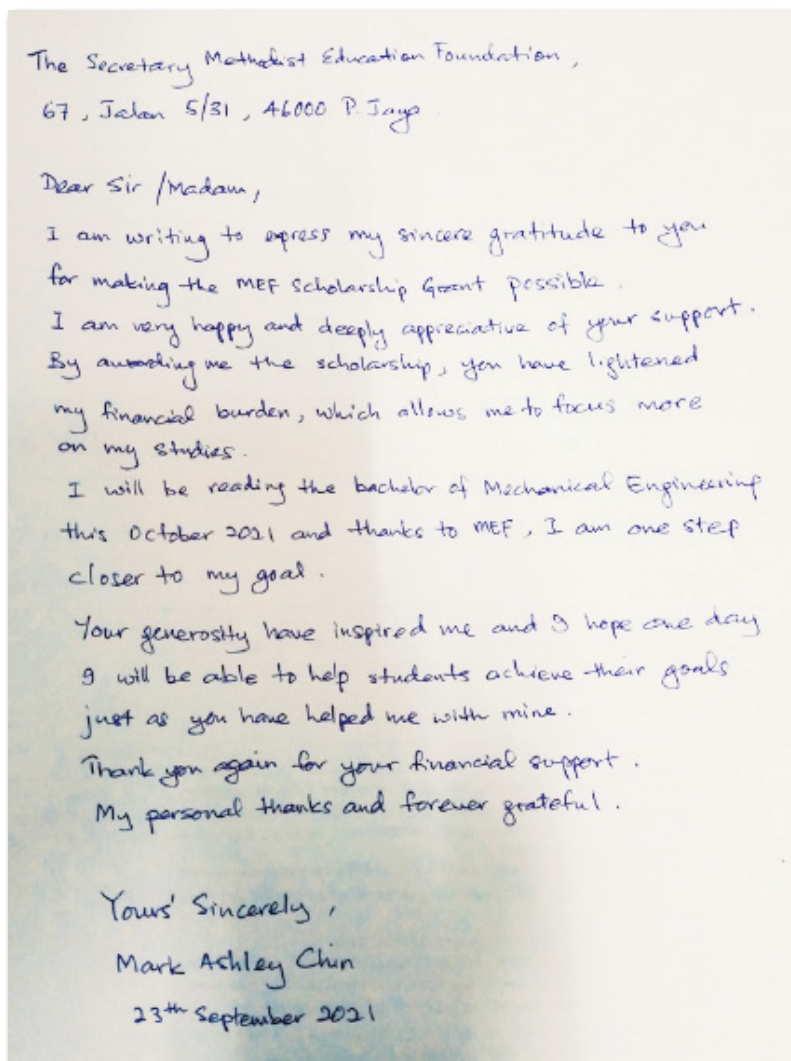 The Secretary Methodist Education Foundation,
67, Jalan 5/31, 46000 P. Jaya
Dear Sir /Madam,
I am writing to epress my sincere gratitude to you
for making the MEF Scholarship Grant possible.
I am very happy and deeply appreciative of your support.
By awarding me the scholarship, you have lightened
my financial burden, which allows me to focus more
on my studies.
I will be reading the bachelor of Mechanical Engineering
this October 2021 and thanks to MEF, I am one step
closer to my goal.
Your generosity have inspired me and I hope one day
I will be able to help students achieve their goals
just as you have helped me with mine.
Thank you again for your financial support.
My personal thanks and forever grateful.
Yours' Sincerely,
Mark Ashley Chin
23th September 2021